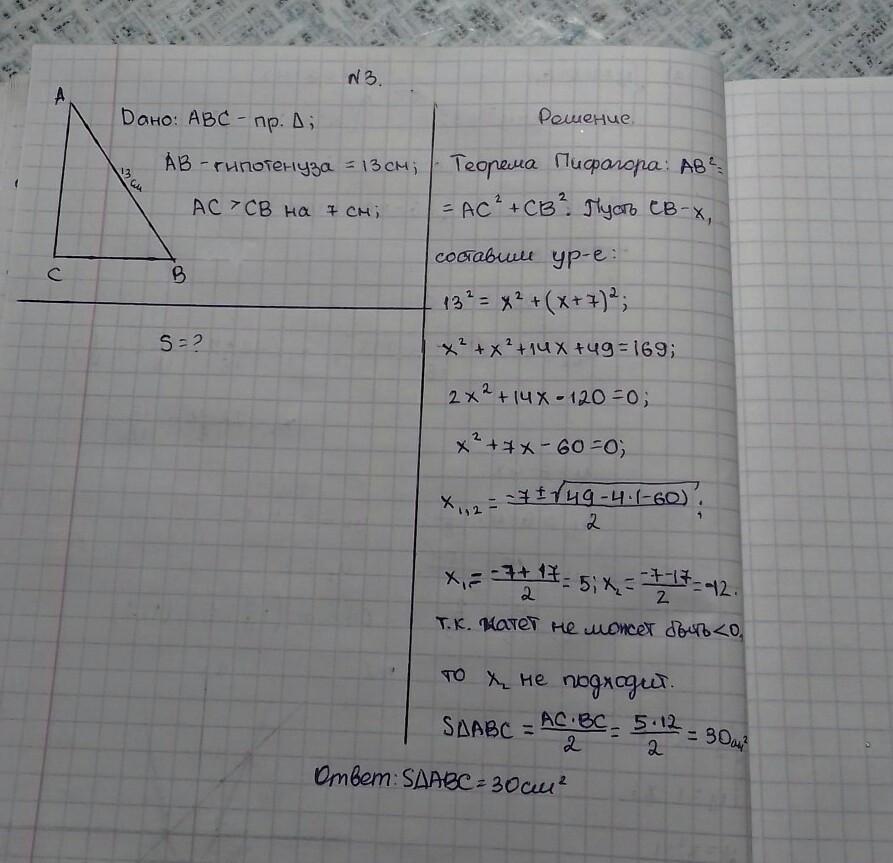 N3.
A
Дано: ABC - пр. Δ;
AB - гипотенуза = 13 см;
AC > CB на 7 см;
13 см
C
B
S = ?
Решение.
Теорема Пифагора: AB² =
= AC² + CB². Пусть CB - x,
составим ур-е:
13² = x² + (x+7)²;
x² + x² + 14x + 49 = 169;
2x² + 14x - 120 = 0;
x² + 7x - 60 = 0;
x₁,₂ = (-7 ± √(49 - 4·(-60)))/2;
x₁ = (-7 + 17)/2 = 5; x₂ = (-7 - 17)/2 = -12.
т.к. катет не может быть < 0,
то x₂ не подходит.
SΔABC = (AC·BC)/2 = (5·12)/2 = 30 см²
Ответ: SΔABC = 30 см²